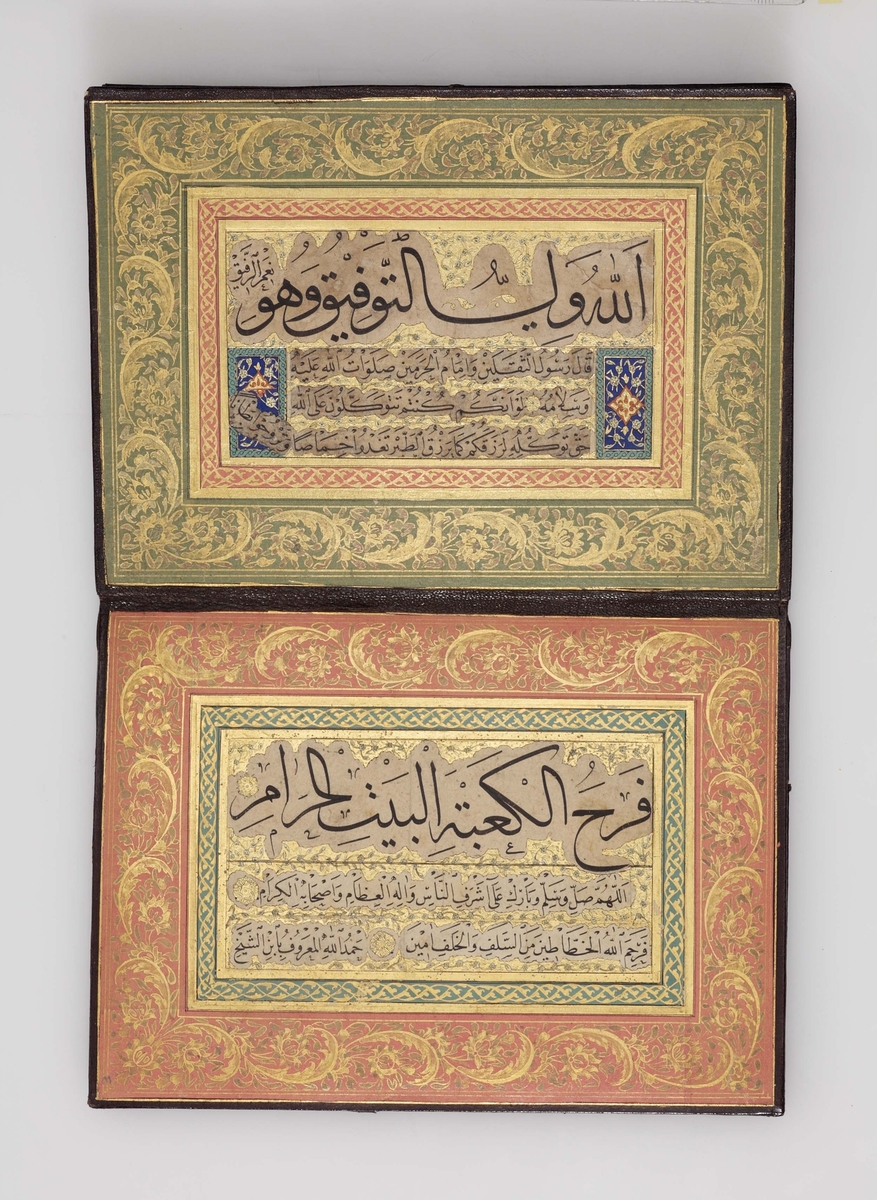 اَللّٰهُ وَلِيُّ التَّوْفِيقِ وَهُوَ نِعْمَ الرَّفِيقُ
قَالَ رَسُولُ الثَّقَلَيْنِ وَاِمَامُ الْحَرَمَيْنِ صَلَوَاتُ اللّٰهِ عَلَيْهِ
وَسَلَامُهُ لَوْ اَنَّكُمْ كُنْتُمْ تَتَوَكَّلُونَ عَلَى اللّٰهِ
حَقَّ تَوَكُّلِهِ لَرَزَقَكُمْ كَمَا يَرْزُقُ الطَّيْرَ تَغْدُوا خِمَاصًا
فَرَحُ الْكَعْبَةِ الْبَيْتِ الْحَرَامِ
اَللّٰهُمَّ صَلِّ وَسَلِّمْ وَبَارِكْ عَلَى اَشْرَفِ النَّاسِ وَاٰلِهِ الْعِظَامِ وَاَصْحَابِهِ الْكِرَامِ
فَرَحِمَ اللّٰهُ الْخَطَّاطِينَ مِنَ السَّلَفِ وَالْخَلَفِ اٰمِين حَمْدُ اللّٰهِ الْمَعْرُوفُ بِابْنِ الشَّيْخِ